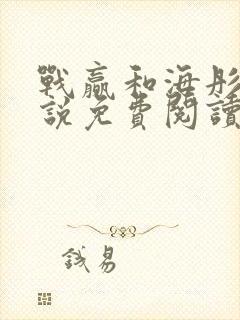 戰贏和海彤
說免費閱讀
錢易